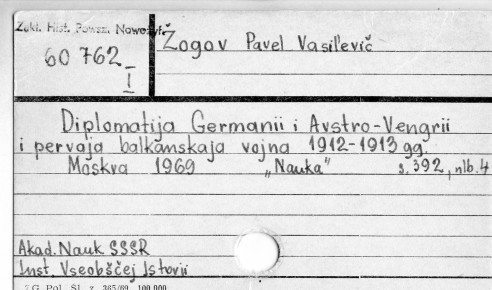 Zakł. Hist. Powsz. Nowożyt.
60 762
I
Žogov Pavel Vasil'evič
Diplomatija Germanii i Avstro-Vengrii
i pervaja balkanskaja vojna 1912-1913 gg.
Moskva 1969 „Nauka" s. 392, nlb. 4
Akad. Nauk SSSR
Inst. Vseobščej Istorii
Pol. Śl. z. 365/69 100.000